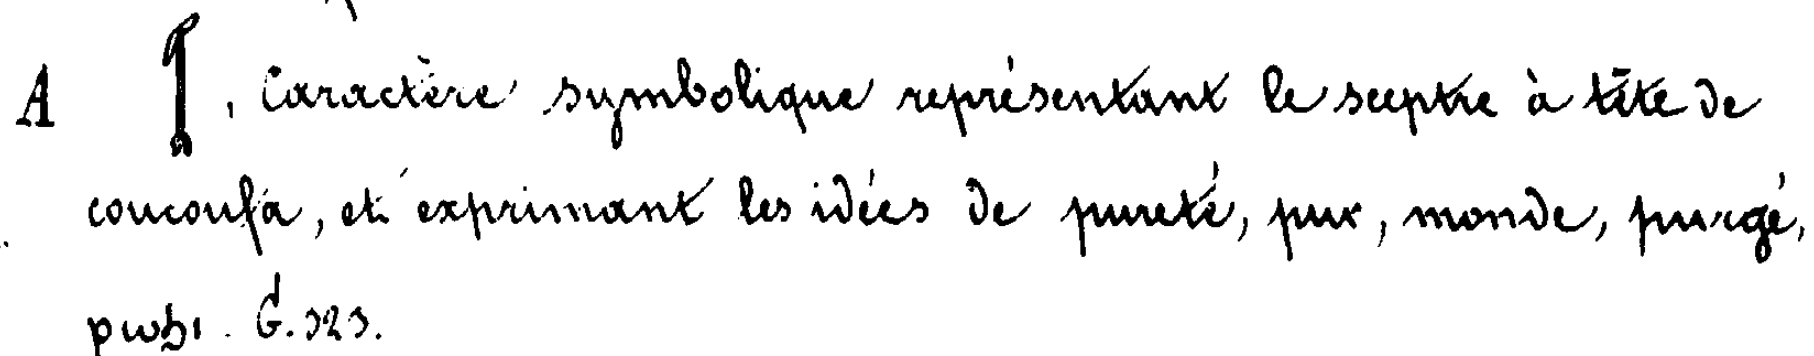 A 𓌀, Caractère symbolique représentant le sceptre à tête de
coucoufa, et exprimant les idées de pureté, pur, monde, purgé,
ⲣⲱϧⲓ. G. 323.